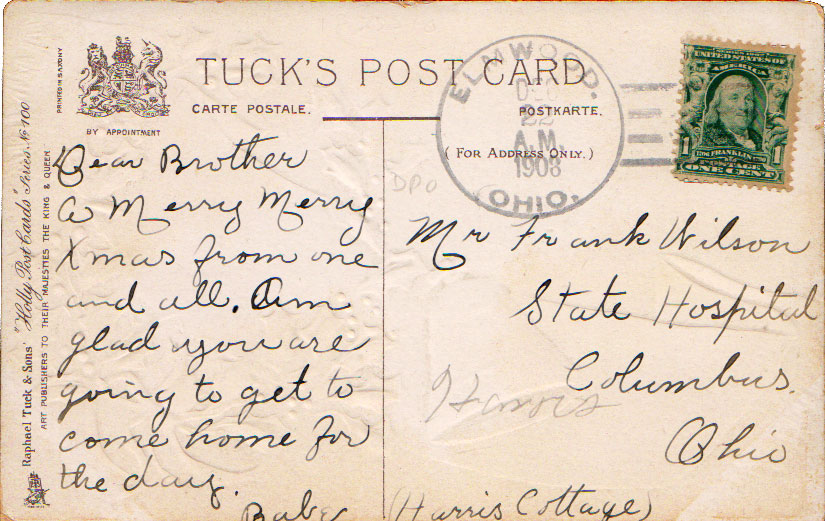 TUCK'S POST CARD
CARTE POSTALE.
POSTKARTE.
BY APPOINTMENT
(FOR ADDRESS ONLY.)
PRINTED IN SAXONY
Raphael Tuck & Sons' "Holly Post Cards" Series No 100
ART PUBLISHERS TO THEIR MAJESTIES THE KING & QUEEN
ELMWOOD,
DEC
22
A.M.
1908
OHIO.
UNITED STATES OF
AMERICA
1 FRANKLIN 1
POSTAGE
ONE CENT
DPO
Dear Brother
A Merry Merry
Xmas from one
and all. Am
glad you are
going to get to
come home for
the day.
Babe
Mr Frank Wilson
State Hospital
Columbus.
Ohio
Harris
(Harris Cottage)